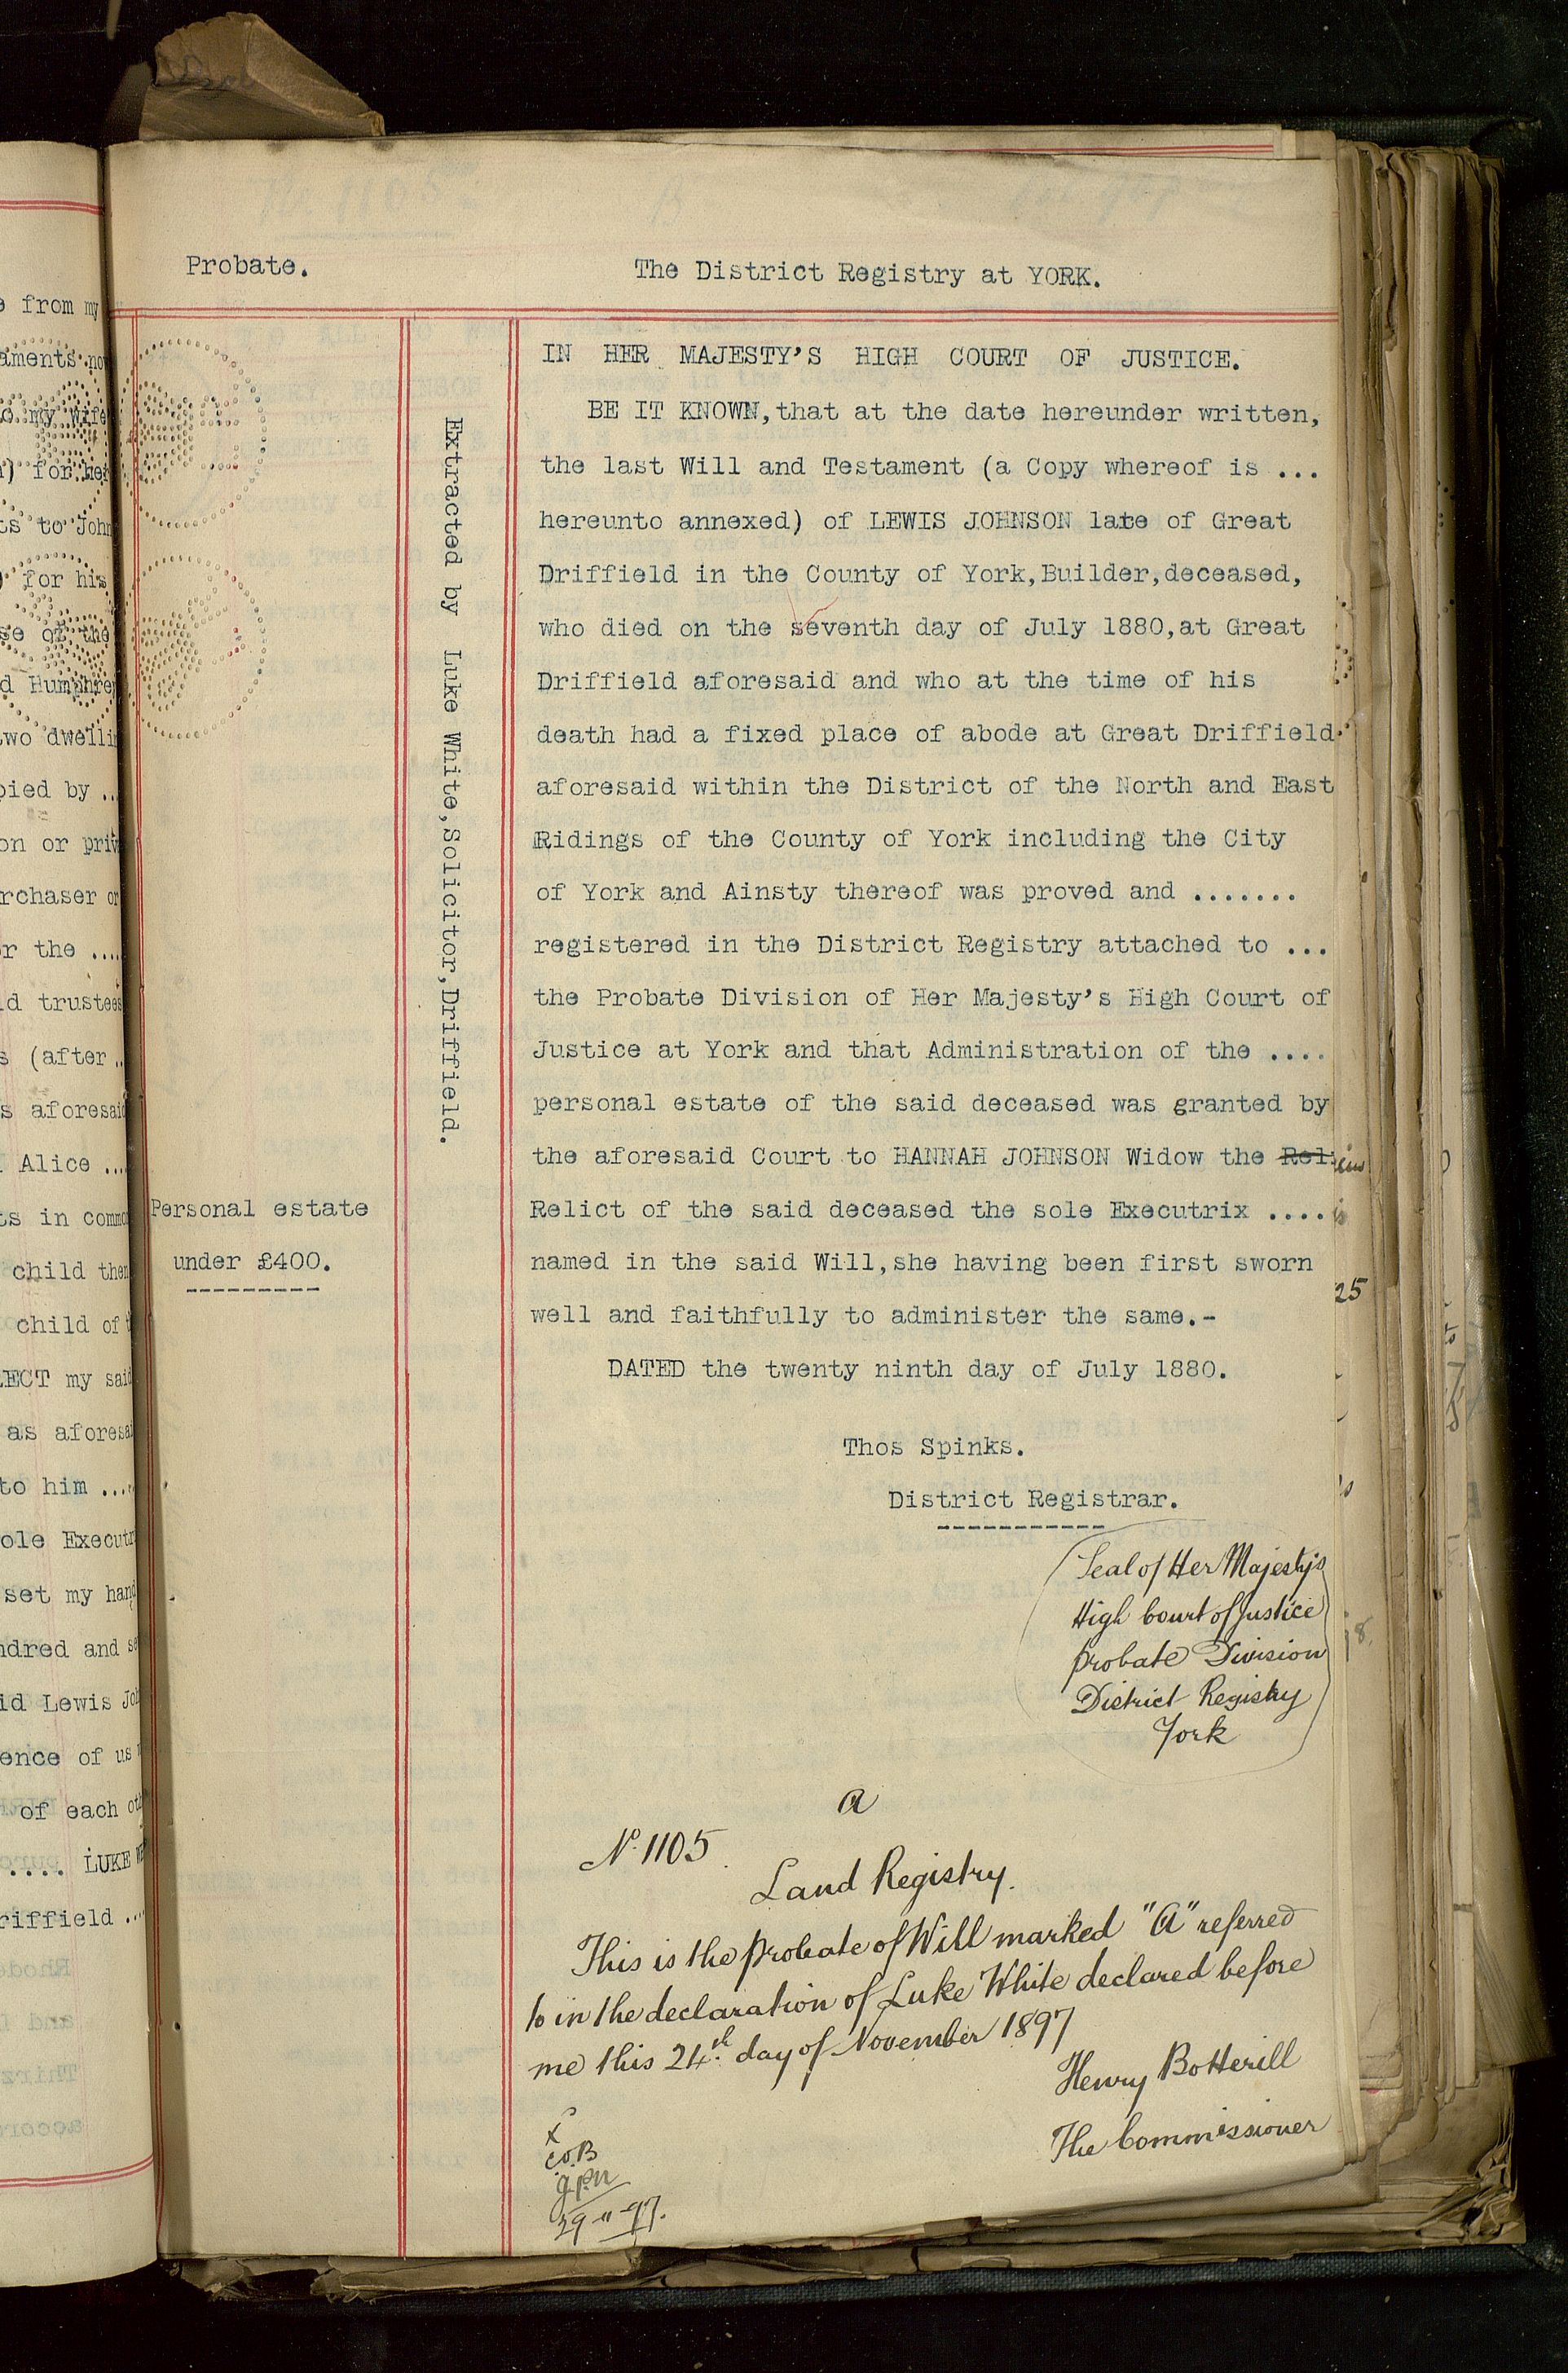 Probate.
The District Registry at YORK.
IN HER MAJESTY'S HIGH COURT OF JUSTICE.
BE IT KNOWN,that at the date hereunder written,
the last Will and Testament (a Copy whereof is ...
hereunto annexed) of LEWIS JOHNSON late of Great
Driffield in the County of York,Builder,deceased,
who died on the seventh day of July 1880,at Great
Driffield aforesaid and who at the time of his
death had a fixed place of abode at Great Driffield
aforesaid within the District of the North and East
Ridings of the County of York including the City
of York and Ainsty thereof was proved and .......
registered in the District Registry attached to ...
the Probate Division of Her Majesty's High Court of
Justice at York and that Administration of the ....
personal estate of the said deceased was granted by
the aforesaid Court to HANNAH JOHNSON Widow the Rel
Relict of the said deceased the sole Executrix ....
named in the said Will,she having been first sworn
well and faithfully to administer the same.-
DATED the twenty ninth day of July 1880.
Thos Spinks.
District Registrar.
Extracted by Luke White,Solicitor,Driffield.
Personal estate
under £400.
Seal of Her Majesty's
High Court of Justice
Probate Division
District Registry
York
A
No. 1105
Land Registry.
This is the probate of Will marked "A" referred
to in the declaration of Luke White declared before
me this 24th day of November 1897
Henry Botterill
The Commissioner
x
29 11 97.
e from my
to my wife
for her
ts to John
for his
se of the
d Humphrey
two dwellin
pied by ..
on or priv
rchaser or
or the ....
ld trustees
s (after ..
s aforesaid
Alice ...
ts in common
child then
child of t
LECT my said
as aforesai
to him ....
ole Executr
set my hand
ndred and se
id Lewis Joh
ence of us
of each oth
.... LUKE
riffield ...
25